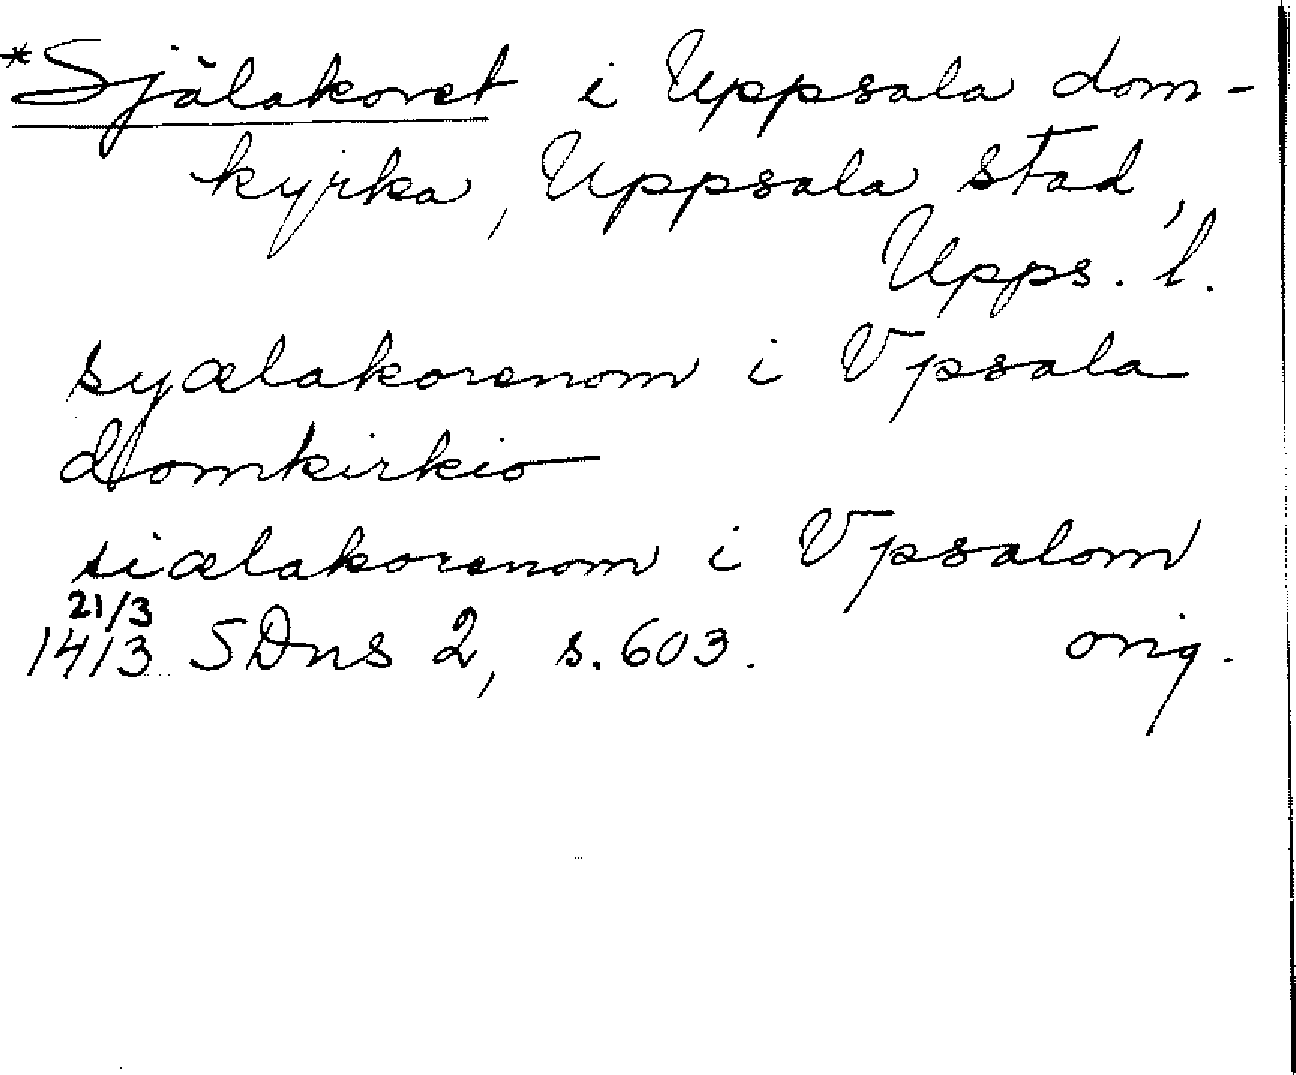 *Själakoret i Uppsala dom-
kyrka, Uppsala stad,
Upps. l.
syælakorenom i Vpsala
domkirkio
siælakorenom i Vpsalom
21/3
1413 SDns 2, s. 603. orig.